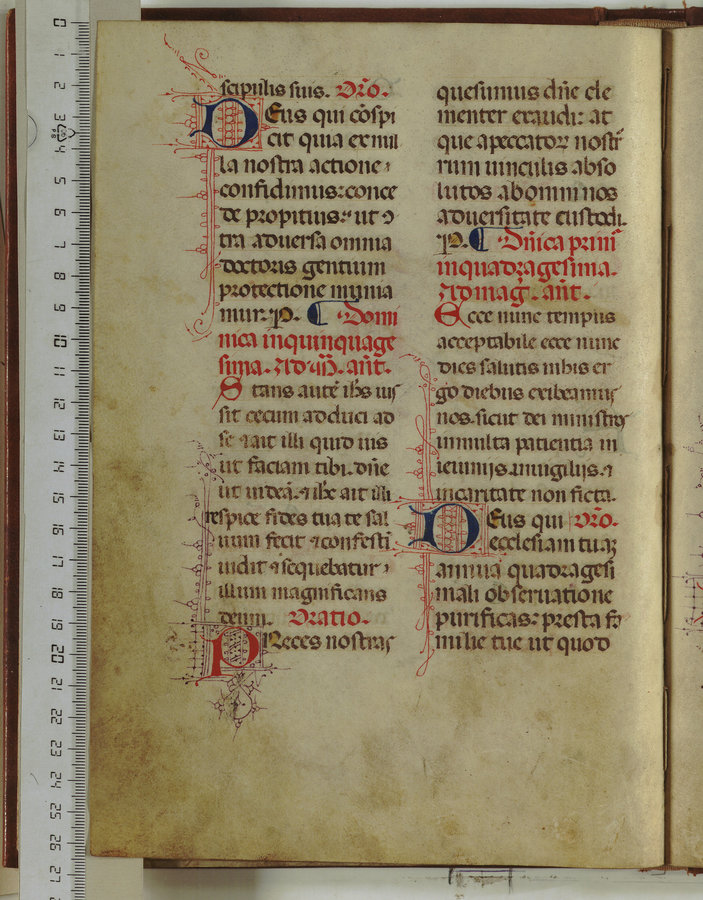 scipulis suis. Oꝛo.
Deus qui cōspi
cit quia ex nul
la nostra actione
confidimus: conce
de propitius: ut ↄ
tra aduersa omnia
doctoris gentium
protectione munia
mur: p. ¶ Domi
nica in quinquage
sima. Ad m̄. ant̄.
Stans autē ihs ius
sit cecum adduci ad
se ⁊ ait illi quid uis
ut faciam tibi. dn̄e
ut uideā. ⁊ ihc ait illi
respice fides tua te sal
uum fecit ⁊ confesti
uidit ⁊ sequebatur
illum magnificans
deum. Oratio.
Preces nostras
quesumus dn̄e cle
menter exaudi: at
que a peccatoꝝ nostr̄
rum uinculis abso
lutos ab omni nos
aduersitate custodi.
p. ¶ Dn̄ica prim̄
in quadragesima.
Ad maḡ. ant̄.
Ecce nunc tempus
acceptabile ecce nunc
dies salutis in his er
go diebus exibeamus
nos. sicut dei ministros
in multa patientia in
ieiunijs in uigilijs. ⁊
in caritate non ficta.
Deus qui Oꝛo.
ecclesiam tuaꝫ
annua quadragesi
mali obseruatione
purificas: presta fa
milie tue ut quod